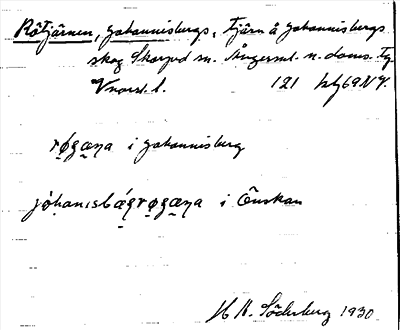 Rötjärnen, Johannisbergs, tjärn å Johannisbergs
skog Skorped sn. Ångerml. n. doms. tg
Vnorrl. l. 121 ktbl 69 N4.
rø̣gæŋa i Johannisberg
jòhanısbágrø̣gæŋa i Önskan
H. Söderberg 1930